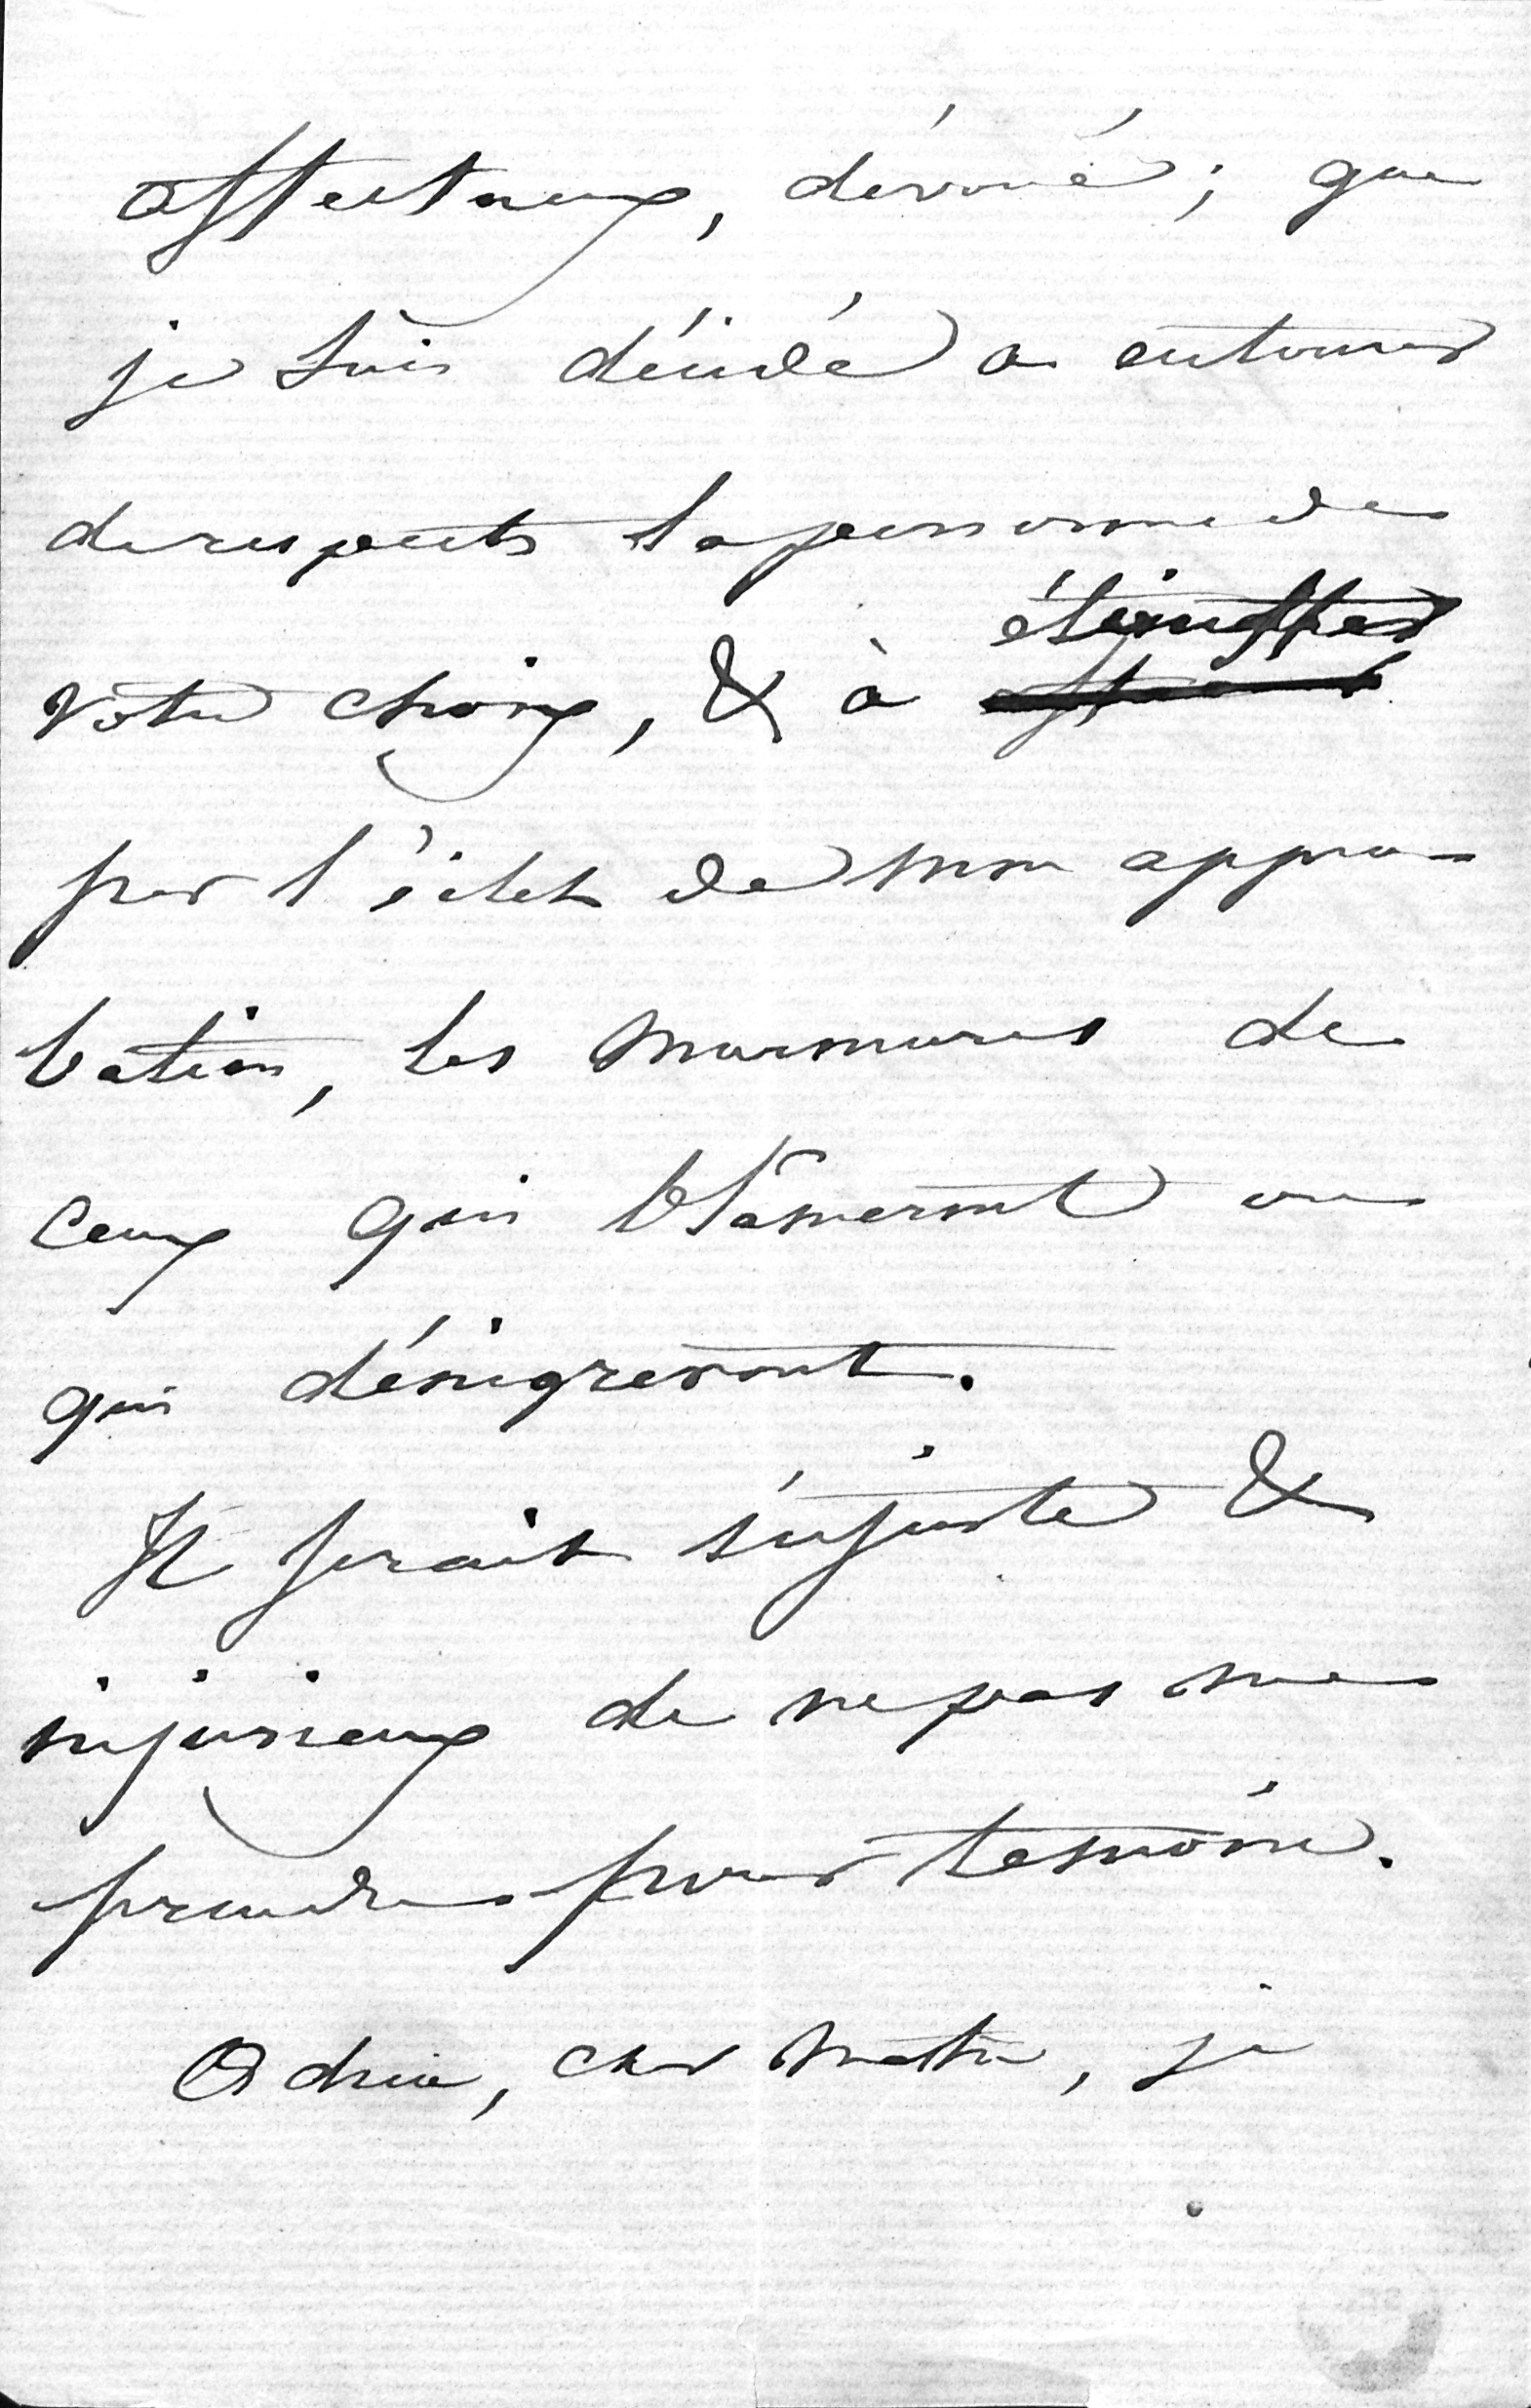 affectueux, dévoué ; que
je suis décidé a entourer
de respects la personne de
étouffer
votre choix, & à
par l'éclat de mon appro-
bation, les murmures de
ceux qui blâmeront ou
qui dénigreront.
Il serait injuste &
injurieux de ne pas me
prendre pour temoin.
Adieu, cher maître, je